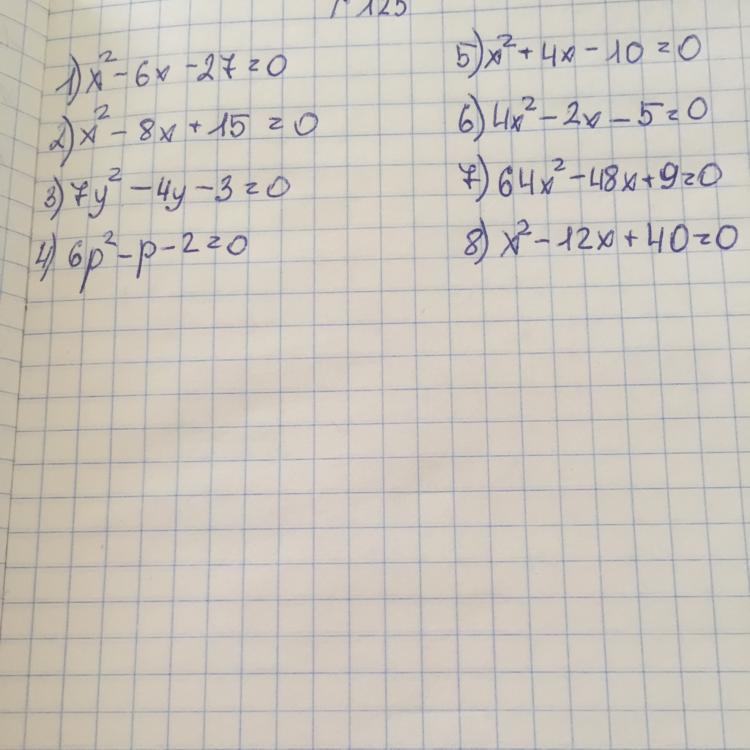 125
1) x² - 6x - 27 = 0
2) x² - 8x + 15 = 0
3) 7y² - 4y - 3 = 0
4) 6p² - p - 2 = 0
5) x² + 4x - 10 = 0
6) 4x² - 2x - 5 = 0
7) 64x² - 48x + 9 = 0
8) x² - 12x + 40 = 0